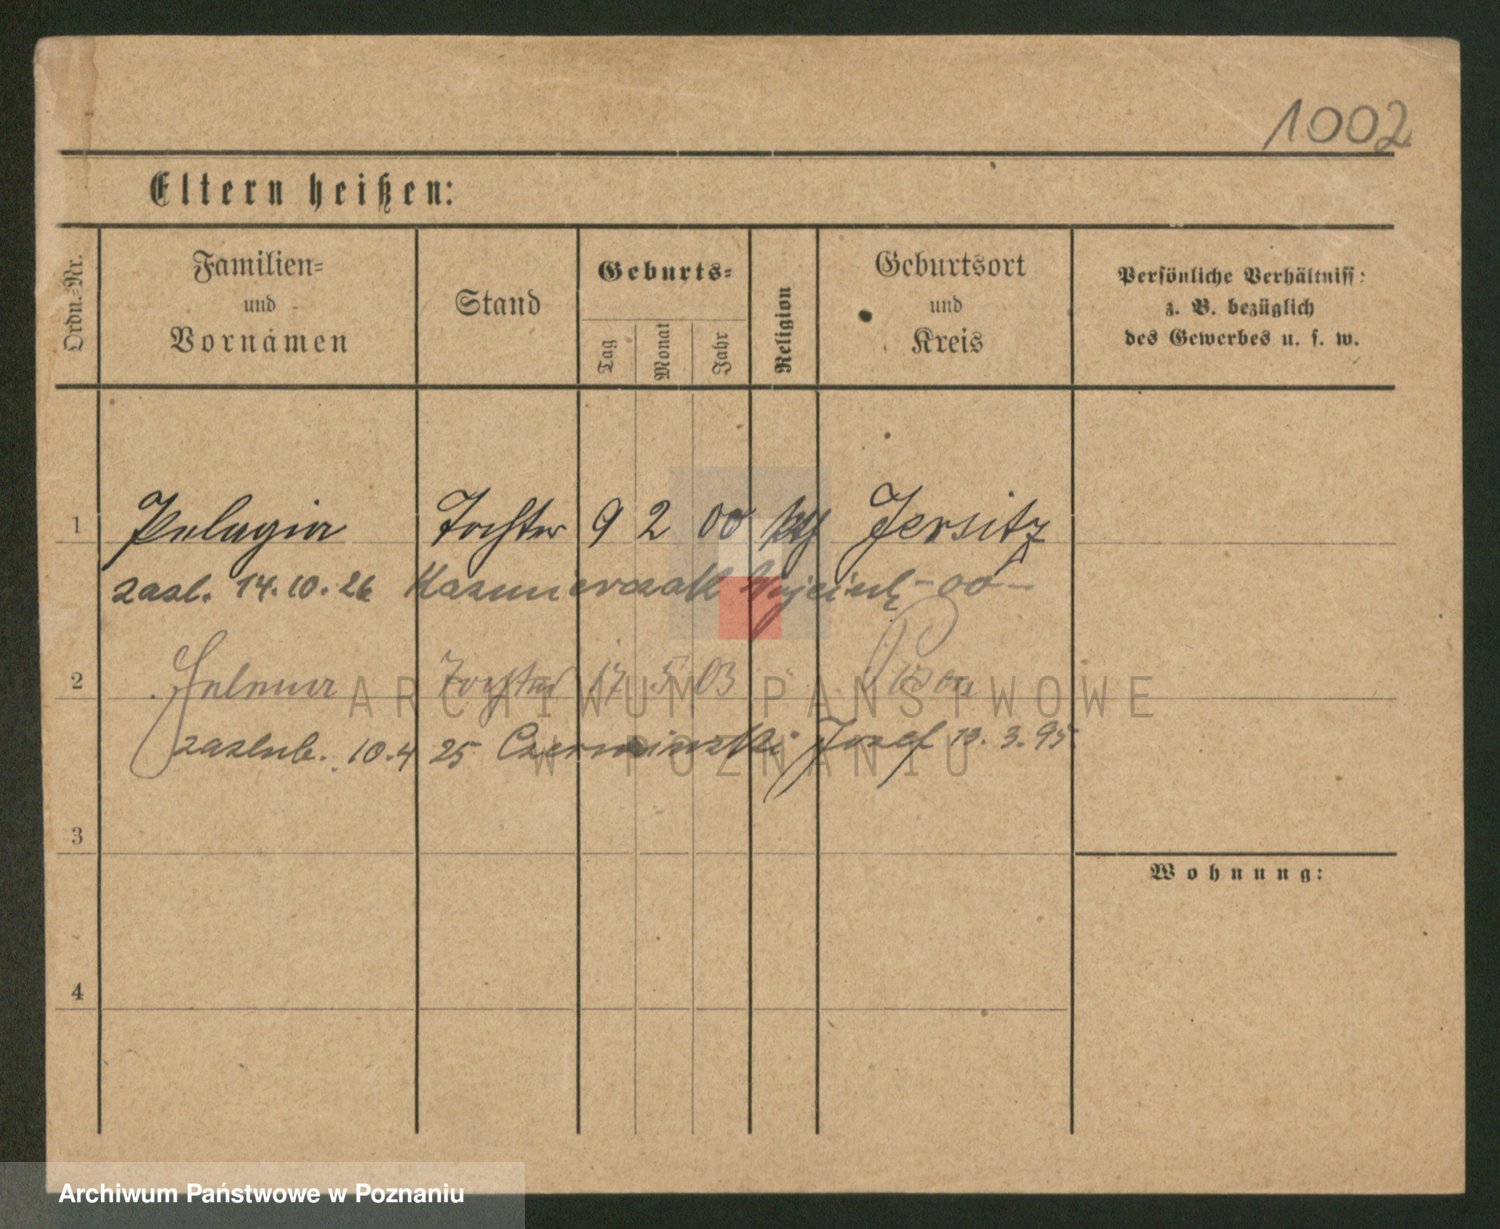 1002
Eltern heißen:
Ordn.-Nr.
Familien-
und
Vornamen
Stand
Geburts-
Tag
Monat
Jahr
Religion
Geburtsort
und
Kreis
Persönliche Verhältniss:
z. B. bezüglich
des Gewerbes u. s. w.
1 Pelagia Tochter 9 2 00 kth Jersitz
zasl. 14.10.26 Kazmierczak Wojciech - 00 -
2 Helena Tochter 17 5 03 " Posen
zaslub. 10.4 25 Czerwinski Jozef 13.3.95
3
Wohnung:
4
ARCHIWUM PAŃSTWOWE
W POZNANIU
Archiwum Państwowe w Poznaniu